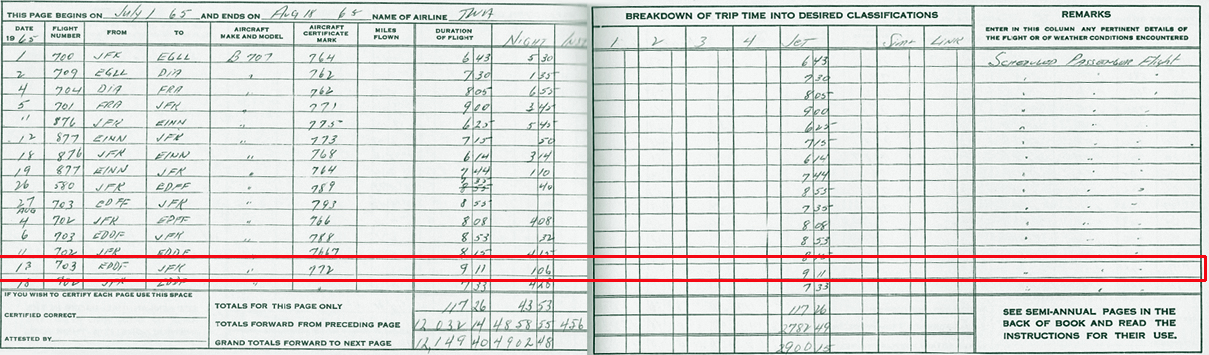 THIS PAGE BEGINS ON July 1 65 AND ENDS ON Aug 18 65 NAME OF AIRLINE TWA
BREAKDOWN OF TRIP TIME INTO DESIRED CLASSIFICATIONS
REMARKS
ENTER IN THIS COLUMN ANY PERTINENT DETAILS OF THE FLIGHT OR OF WEATHER CONDITIONS ENCOUNTERED
DATE 1965 FLIGHT NUMBER FROM TO AIRCRAFT MAKE AND MODEL AIRCRAFT CERTIFICATE MARK MILES FLOWN DURATION OF FLIGHT NIGHT INST 1 2 3 4 JET SIM LINK
1 700 JFK EGLL B707 764 6 43 5 30 6 43 SCHEDULED PASSENGER FLIGHT
2 709 EGLL DIA " 762 7 30 1 35 7 30 " " "
4 704 DIA FRA " 762 8 05 6 55 8 05 " " "
5 701 FRA JFK " 771 9 00 3 45 9 00 " " "
11 876 JFK EINN " 775 6 25 5 45 6 25 " " "
12 877 EINN JFK " 773 7 15 50 7 15 " " "
18 876 JFK EINN " 768 6 14 3 14 6 14 " " "
19 877 EINN JFK " 764 7 44 1 10 7 44 " " "
26 580 JFK EDFF " 789 7 35 40 8 55 " " "
27 703 EDFF JFK " 793 8 55 7 35 " " "
AUG
4 702 JFK EDFF " 766 8 08 4 08 8 08 " " "
6 703 EDDF JFK " 788 8 53 32 8 53 " " "
11 702 JFK EDDF 7667 8 15 4 15 8 15
13 703 EDDF JFK " 772 9 11 1 06 9 11 " " "
18 702 JFK EDDF 7 33 4 28 7 33 " " "
IF YOU WISH TO CERTIFY EACH PAGE USE THIS SPACE
CERTIFIED CORRECT
ATTESTED BY
TOTALS FOR THIS PAGE ONLY 117 26 43 53 117 26
TOTALS FORWARD FROM PRECEDING PAGE 12,032 14 4858 55 456 2782 49
GRAND TOTALS FORWARD TO NEXT PAGE 12,149 40 4902 48 2900 15
SEE SEMI-ANNUAL PAGES IN THE
BACK OF BOOK AND READ THE
INSTRUCTIONS FOR THEIR USE.